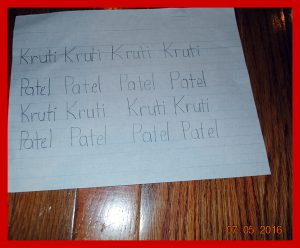 Kruti Kruti Kruti Kruti
Patel Patel Patel Patel
Kruti Kruti Kruti Kruti
Patel Patel Patel Patel
07 05 2016